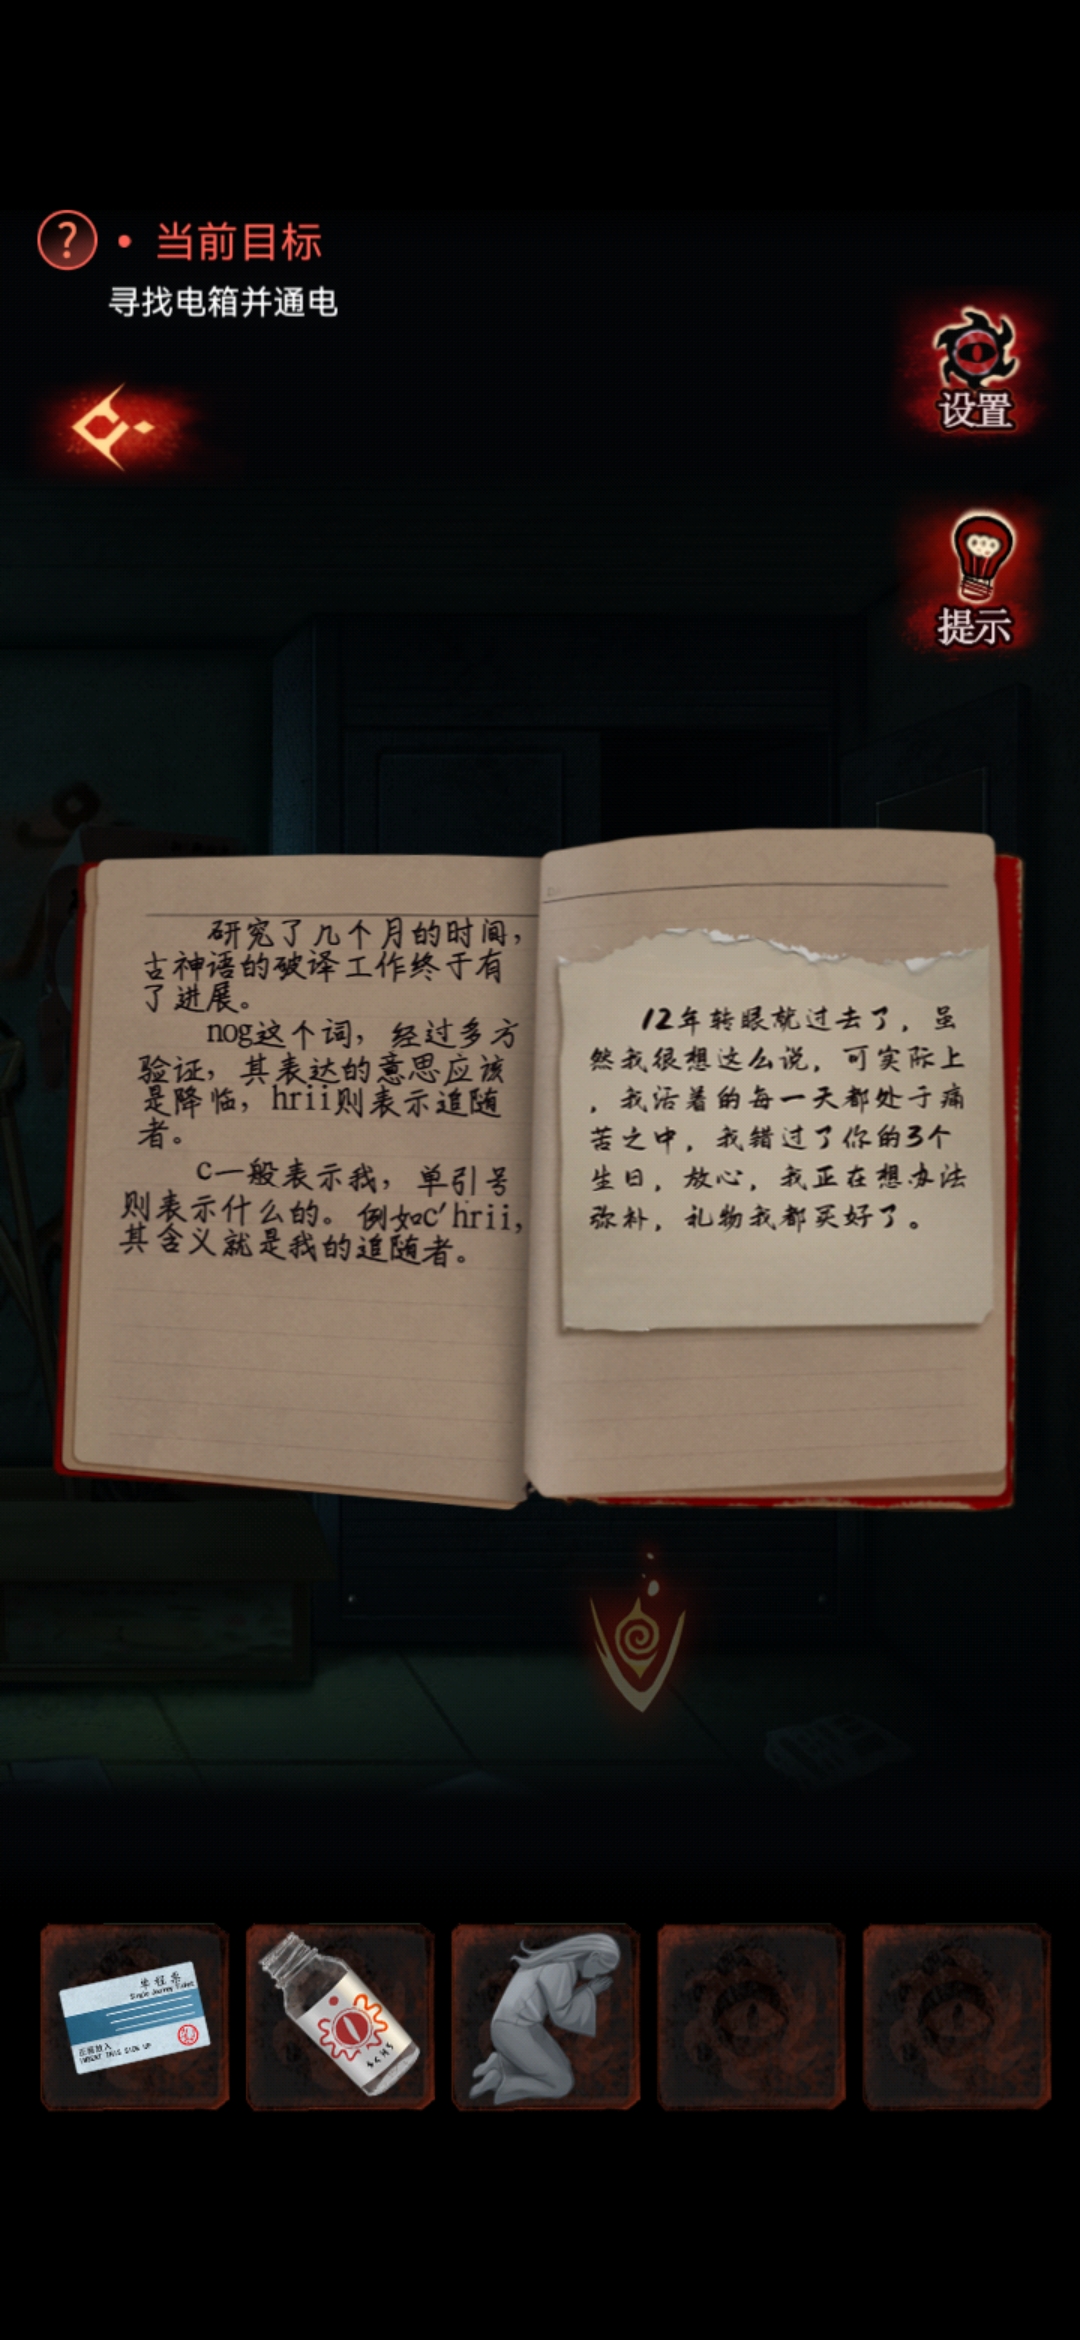 当前目标
寻找电箱并通电
设置
提示
研究了几个月的时间，
古神语的破译工作终于有
了进展。
nog这个词，经过多方
验证，其表达的意思应该
是降临，hrii则表示追随
者。
c一般表示我，单引号
则表示什么的。例如c'hrii，
其含义就是我的追随者。
12年转眼就过去了，虽
然我很想这么说，可实际上
，我活着的每一天都处于痛
苦之中，我错过了你的3个
生日，放心，我正在想办法
弥补，礼物我都买好了。
单程票
Single Journey Ticket